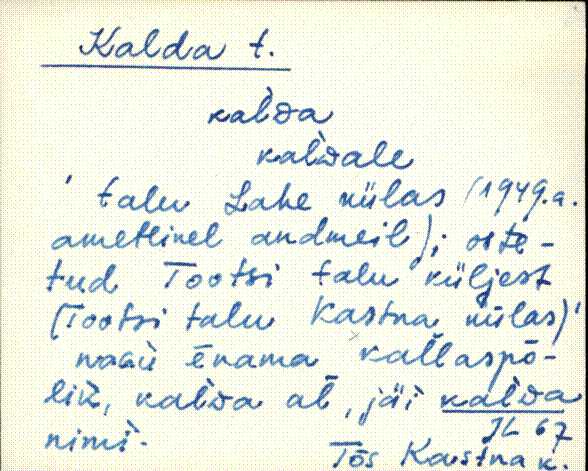 Kalda t.
kal̀da
kal̀dale
' talu Lahe külas (1949.a.
ametlikel andmeil); oste-
tud Tootsi talu küljest
(Tootsi talu Kastna külas)'
ēnama kallaspō-
lik, kal̀da al̄, jäi kal̀da
nimi.
JL 67
Tõs Kastna k.